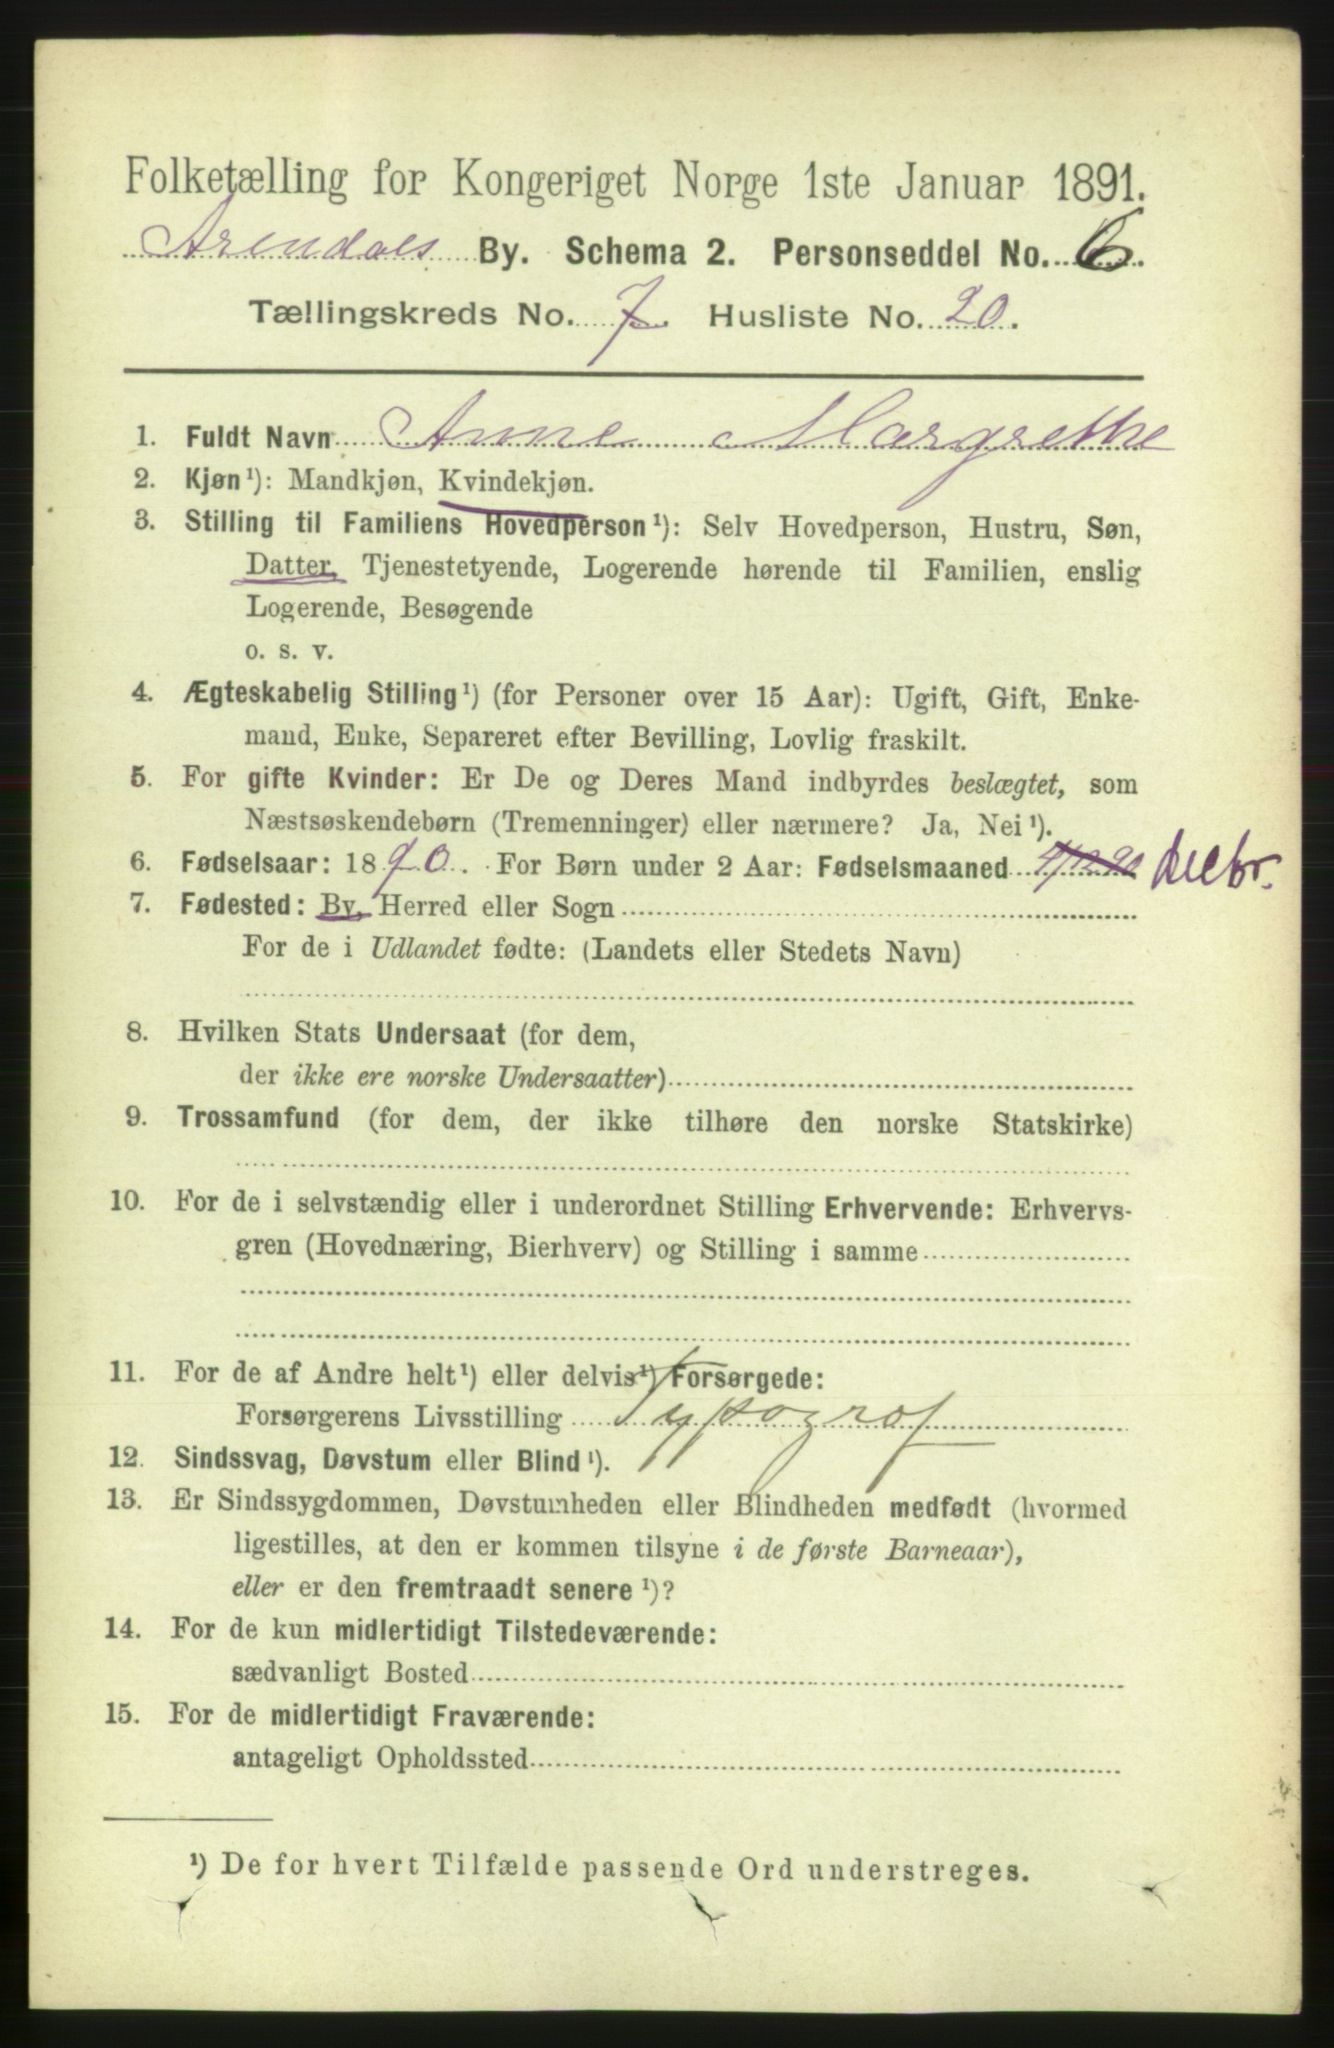 Folketælling for Kongeriget Norge 1ste Januar 1891.
Arendals By. Schema 2. Personseddel No. 6.
Tællingskreds No. 7. Husliste No. 20.
1. Fuldt Navn Anne Margrethe
2. Kjøn¹): Mandkjøn, Kvindekjøn.
3. Stilling til Familiens Hovedperson¹): Selv Hovedperson, Hustru, Søn,
Datter, Tjenestetyende, Logerende hørende til Familien, enslig
Logerende, Besøgende
o. s. v.
4. Ægteskabelig Stilling¹) (for Personer over 15 Aar): Ugift, Gift, Enke-
mand, Enke, Separeret efter Bevilling, Lovlig fraskilt.
5. For gifte Kvinder: Er De og Deres Mand indbyrdes beslægtet, som
Næstsøskendebørn (Tremenninger) eller nærmere? Ja, Nei¹).
6. Fødselsaar: 1890. For Børn under 2 Aar: Fødselsmaaned Decbr.
7. Fødested: By, Herred eller Sogn
For de i Udlandet fødte: (Landets eller Stedets Navn)
8. Hvilken Stats Undersaat (for dem,
der ikke ere norske Undersaatter)
9. Trossamfund (for dem, der ikke tilhøre den norske Statskirke)
10. For de i selvstændig eller i underordnet Stilling Erhvervende: Erhvervs-
gren (Hovednæring, Bierhverv) og Stilling i samme
11. For de af Andre helt¹) eller delvis¹) Forsørgede:
Forsørgerens Livsstilling Typograf
12. Sindssvag, Døvstum eller Blind¹).
13. Er Sindssygdommen, Døvstumheden eller Blindheden medfødt (hvormed
ligestilles, at den er kommen tilsyne i de første Barneaar),
eller er den fremtraadt senere¹)?
14. For de kun midlertidigt Tilstedeværende:
sædvanligt Bosted
15. For de midlertidigt Fraværende:
antageligt Opholdssted
¹) De for hvert Tilfælde passende Ord understreges.